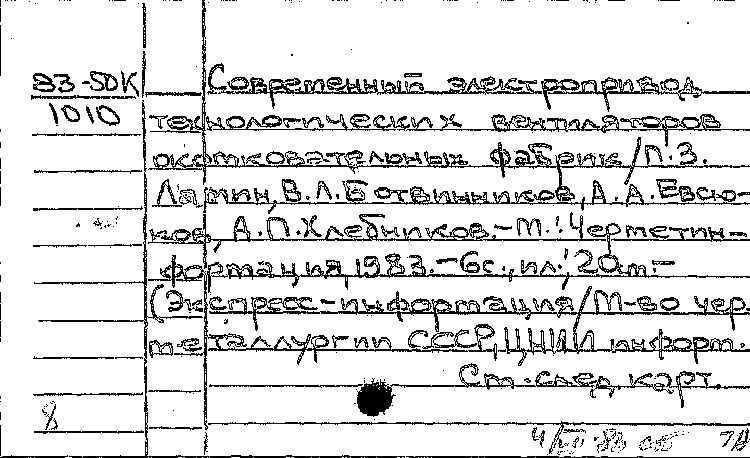 83-50К
1010
Современный электропривод
технологических вентиляторов
окомковательных фабрик / П.З.
Лямин, В.Л. Ботвинников, А.А. Евсю-
ков, А.П. Хлебников.-М.: Черметин-
формация, 1983.-6с., ил.; 20 см.-
(Экспресс-информация / М-во чер.
металлургии СССР, ЦНИИ информ.
См. след. карт.
8